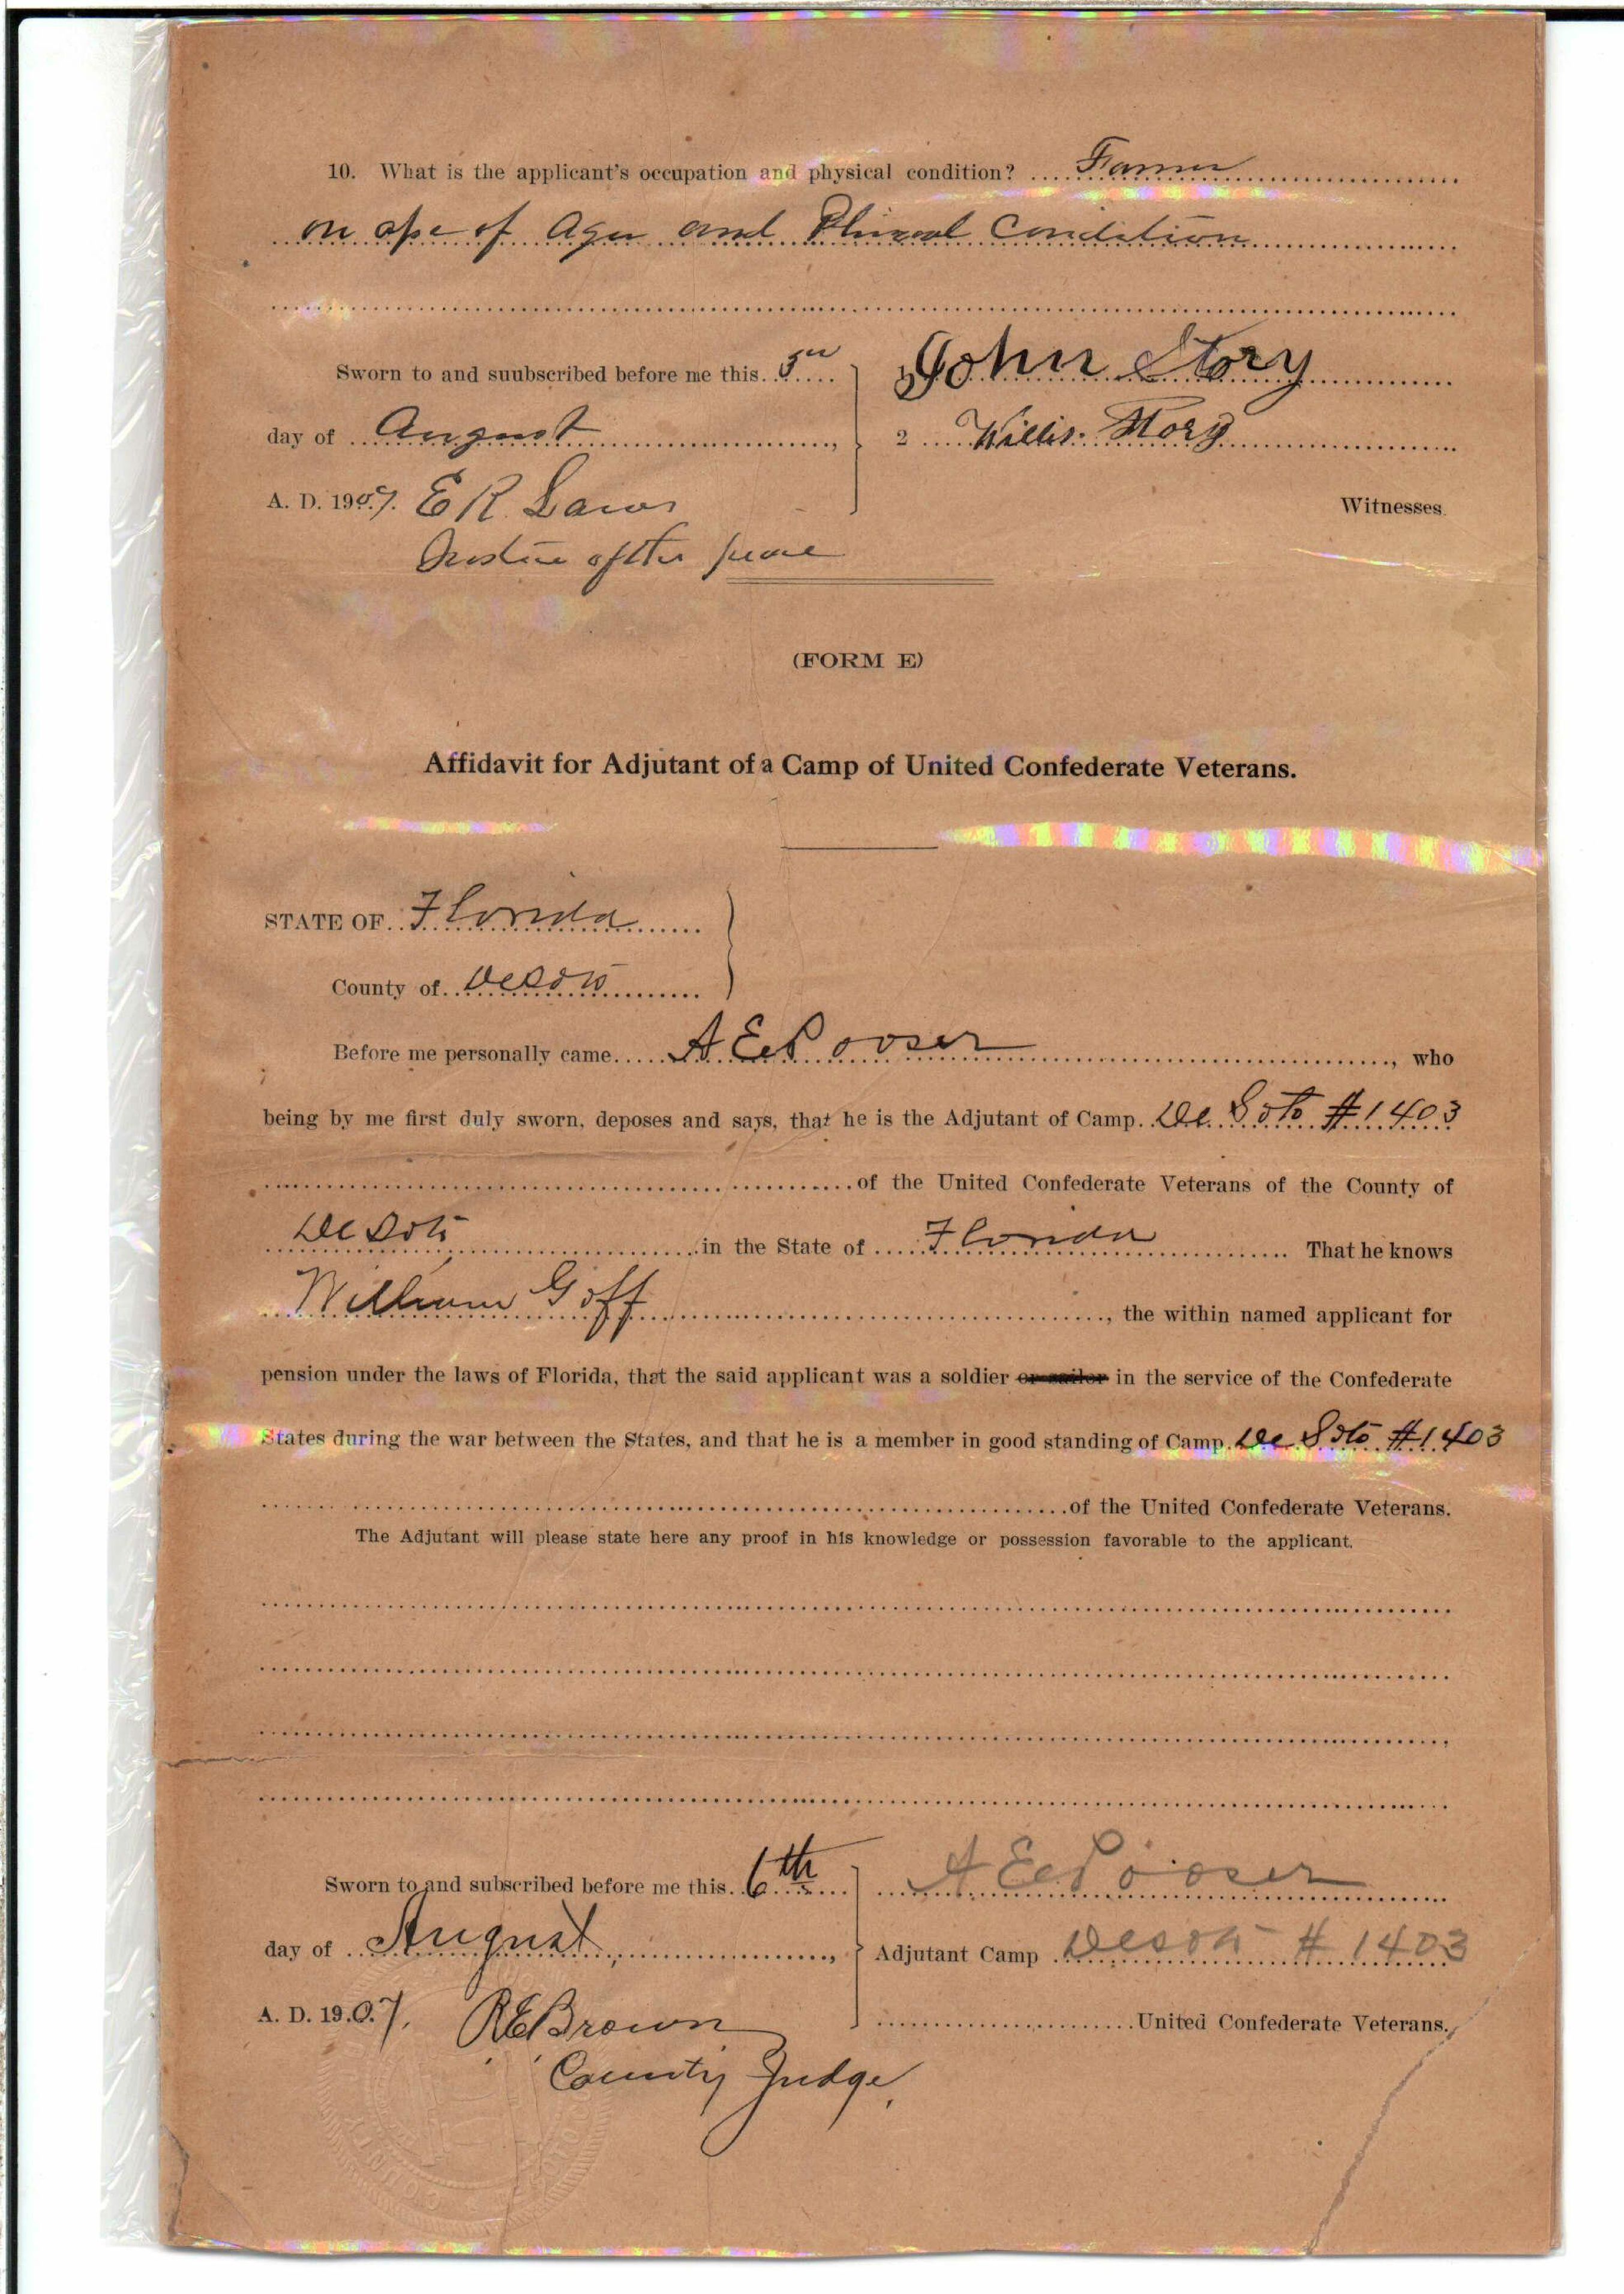 10. What is the applicant's occupation and physical condition? Farmer
on of Age and Condition
Sworn to and suubscribed before me this 5th John Story
day of August, 2 Willis Story
A. D. 1907. E R Witnesses.
Justice of the peace
(FORM E)
Affidavit for Adjutant of a Camp of United Confederate Veterans.
STATE OF Florida
County of DeSoto
Before me personally came A E Pooser, who
being by me first duly sworn, deposes and says, that he is the Adjutant of Camp De Soto #1403
of the United Confederate Veterans of the County of
De Soto in the State of Florida That he knows
William Goff, the within named applicant for
pension under the laws of Florida, that the said applicant was a soldier or sailor in the service of the Confederate
States during the war between the States, and that he is a member in good standing of Camp De Soto #1403
of the United Confederate Veterans.
The Adjutant will please state here any proof in his knowledge or possession favorable to the applicant.
Sworn to and subscribed before me this 6th A E Pooser
day of August, Adjutant Camp Desoto # 1403
A. D. 1907. R E Brown United Confederate Veterans.
County Judge,